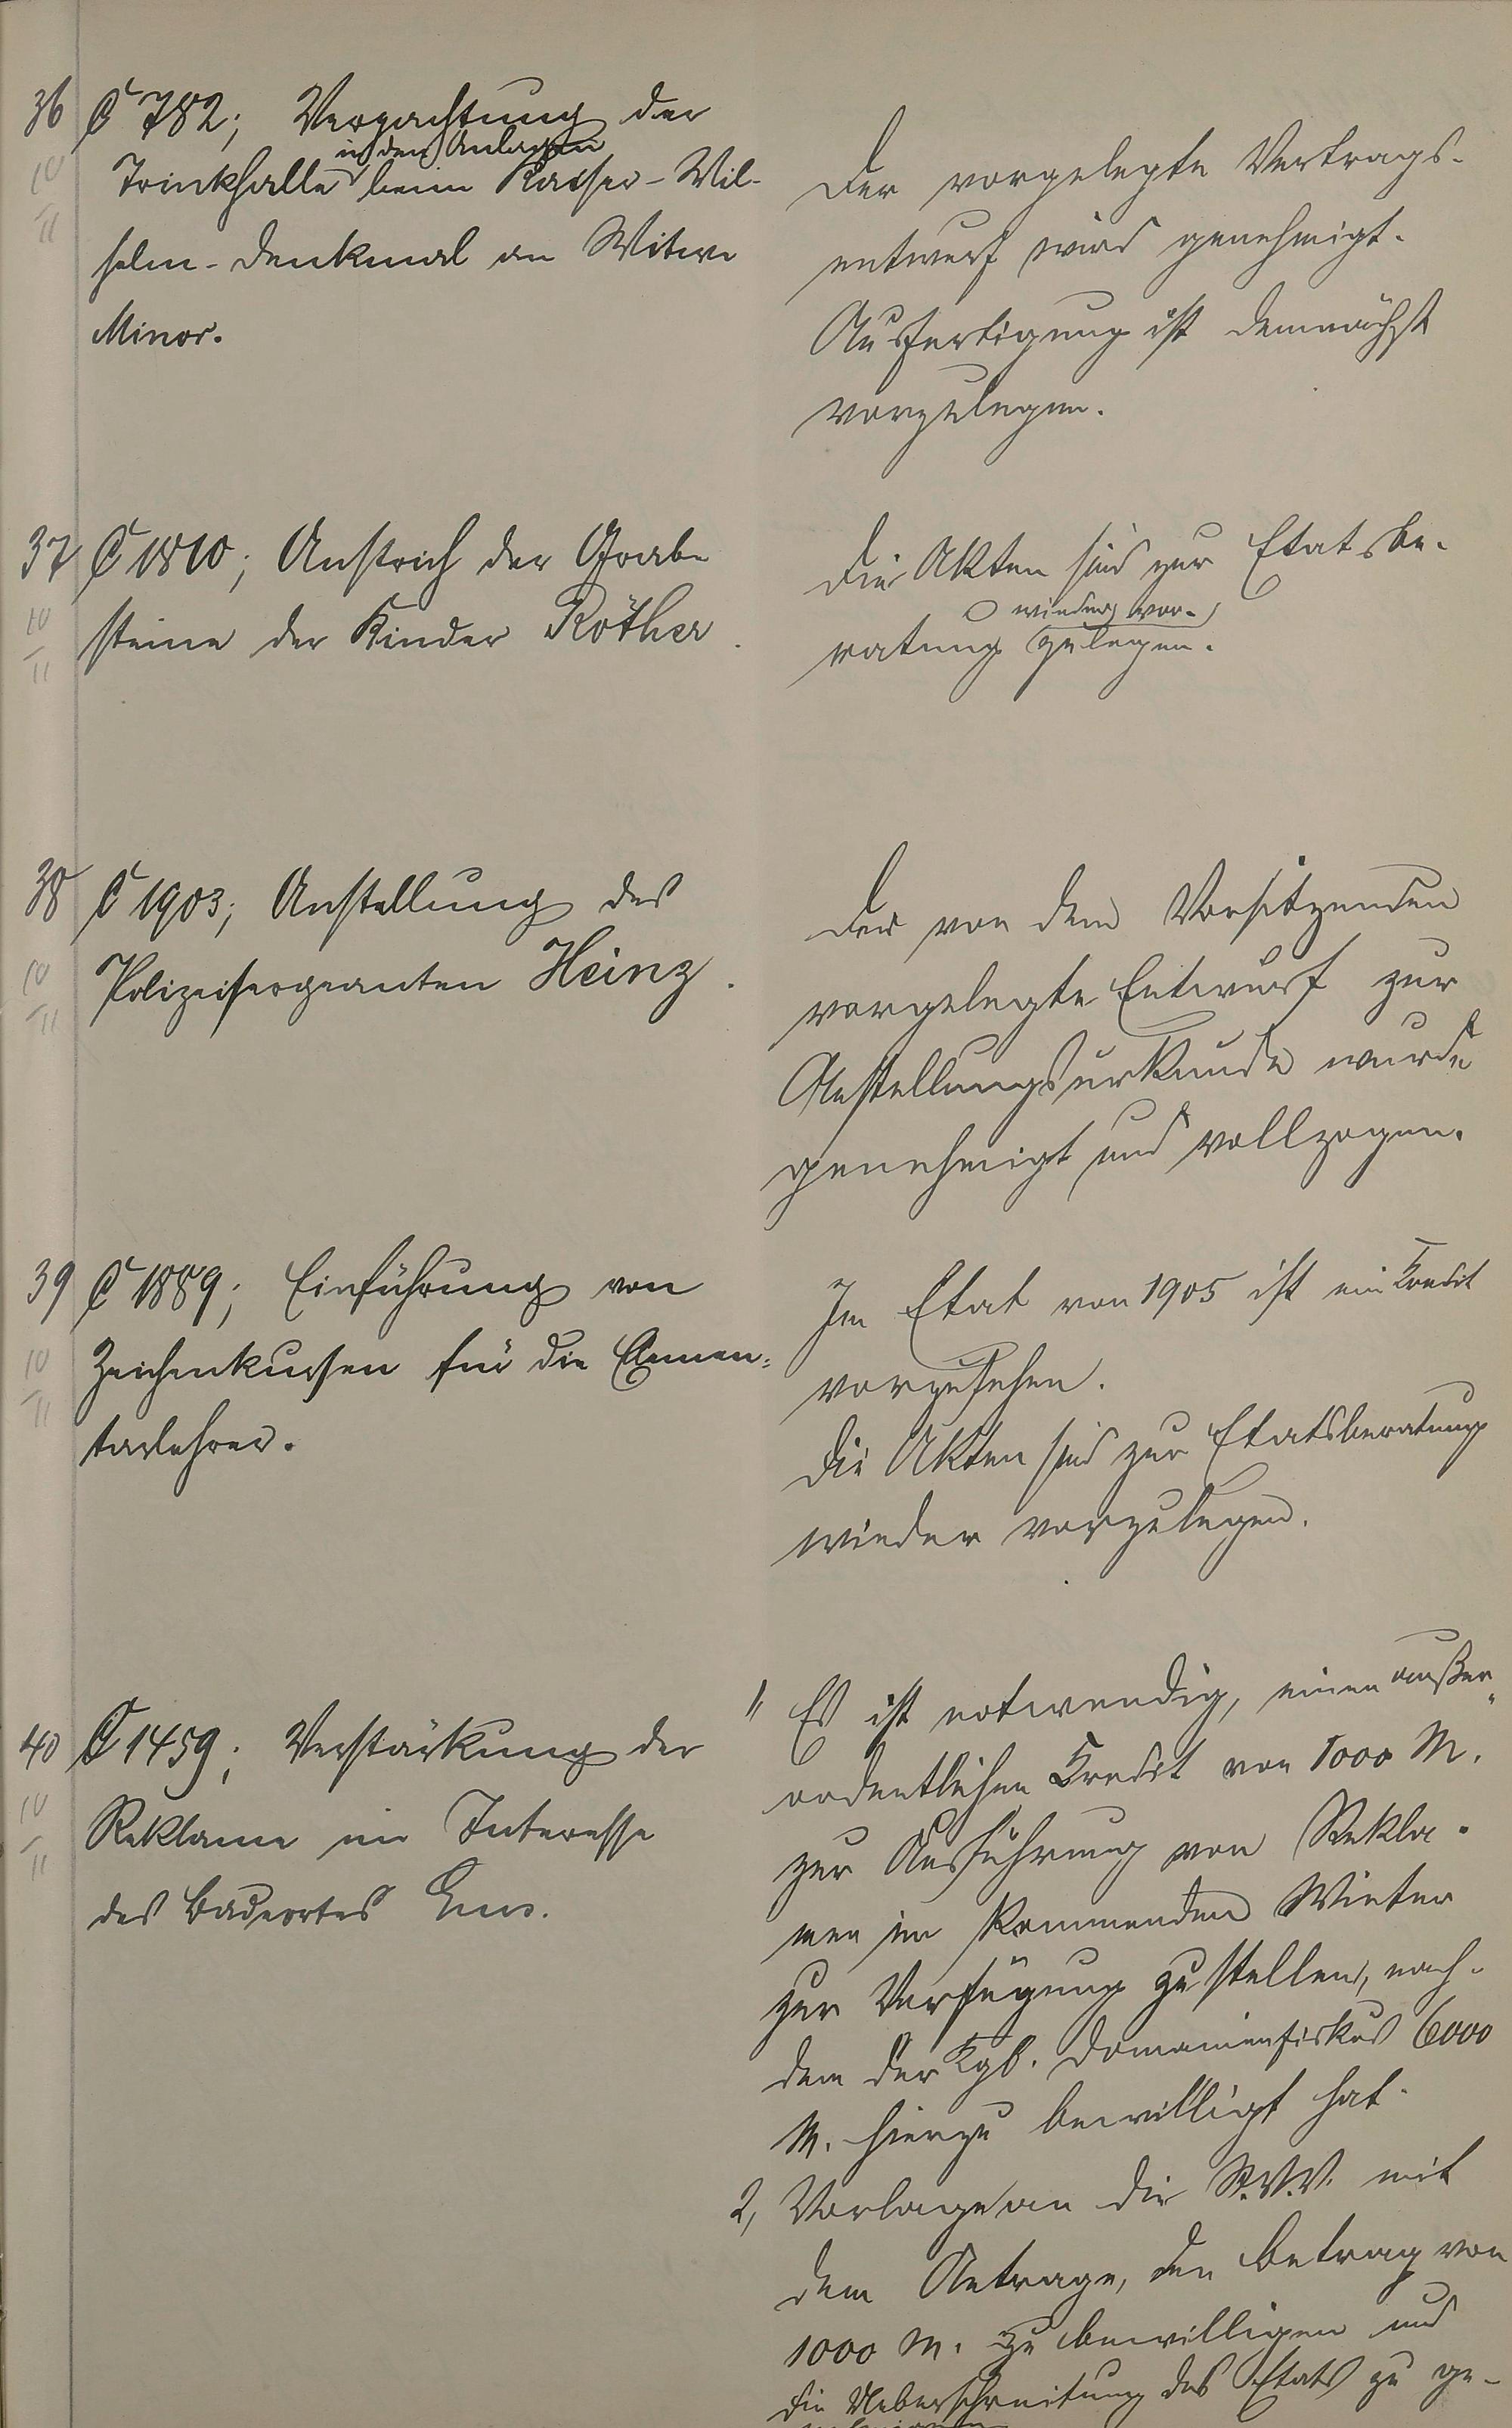 36
10
11
C 782; Verpachtung der
in den Anlagen
Trinkhalle beim Kaiser-Wil-
helm-Denkmal an Witwe
Minor.
Der vorgelegte Vertrags-
entwurf wird genehmigt.
Ausfertigung ist demnächst
vorzulegen.
37
10
11
C 1810; Anstrich der Grabe
steine der Kinder Röther.
Die Akten sind zur Etatsbe-
wieder vor-
ratung zulegen.
38
10
11
C 1903; Anstellung des
Polizeisergeanten Heinz.
Der von dem Vorsitzenden
vorgelegte Entwurf zur
Anstellungsurkunde wurde
genehmigt und vollzogen.
39
10
11
C 1889; Einführung von
Zeichenkursen für die Elemen-
tarlehrer.
Im Etat von 1905 ist ein Kredit
vorzusehen.
Die Akten sind zur Etatsberatung
wieder vorzulegen.
40
10
11
C 1459; Verstärkung der
Reklame im Interesse
des Badeortes Ems.
1, Es ist notwendig, einen außer-
ordentlichen Kredit von 1000 M.
zur Ausführung von Rekla-
men im kommenden Winter
zur Verfügung zu stellen, nach-
dem der Kgl. Domänenfiskus 6000
M. hierzu bewilligt hat.
2, Vorlage an die St.V.V. mit
dem Antrage, den Betrag von
1000 M. zu bewilligen und
die Ueberschreitung des Etats zu ge-